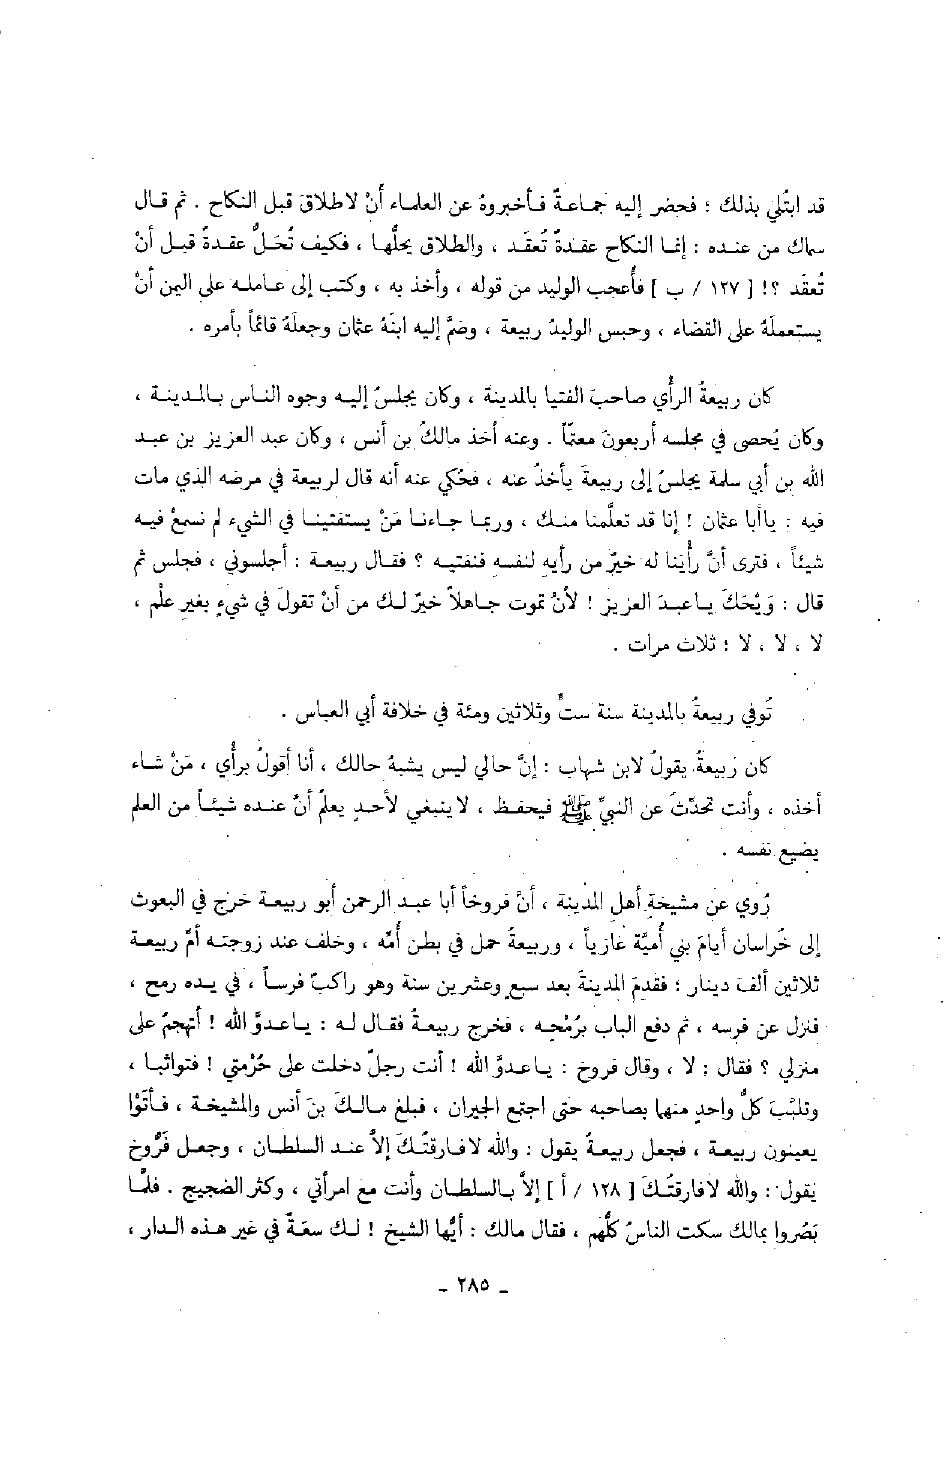 قد ابتُلي بذلك ؛ فحضر إليه جماعةٌ فأخبروهُ عن العلماء أنْ لا طلاقَ قبل النكاح . ثم قال
سماك من عنده : إنما النكاح عقدةٌ تُعقَد ، والطلاق يحلُّها ، فكيف تُحَلُّ عقدةٌ قبل أنْ
تُعقَد ؟! [ ١٢٧ / ب ] فأُعجب الوليد من قوله ، وأخذ به ، وكتب إلى عامله على اليمن أنْ
يستعملَهُ على القضاء ، وحبس الوليدُ ربيعة ، وضمَّ إليه ابنَهُ عثمان وجعلَهُ قائماً بأمره .
كان ربيعةُ الرأي صاحبَ الفتيا بالمدينة ، وكان يجلسُ إليه وجوه الناس بالمدينة ،
وكان يُحصى في مجلسه أربعونَ معتمّاً . وعنه أخذ مالكُ بن أنس ، وكان عبد العزيز بن عبد
الله بن أبي سلمة يجلسُ إلى ربيعةَ يأخذُ عنه ، فحُكي عنه أنه قال لربيعة في مرضه الذي مات
فيه : ياأبا عثمان ! إنا قد تعلَّمنا منك ، وربما جاءنا مَنْ يستفتينا في الشيء لم نسمعْ فيه
شيئاً ، فترى أنَّ رأْينا له خيرٌ من رأيه لنفسه فنفتيه ؟ فقال ربيعة : أجلسوني ، فجلس ثم
قال : وَيْحَكَ ياعبدَ العزيز ! لأنْ تموت جاهلاً خيرٌ لك من أنْ تقولَ في شيءٍ بغير علْم ،
لا ، لا ، لا ؛ ثلاث مرات .
تُوفي ربيعةُ بالمدينة سنة ستٍّ وثلاثين ومئة في خلافة أبي العباس .
كان ربيعةُ يقولُ لابن شهاب : إنَّ حالي ليس يشبهُ حالك ، أنا أقولُ برأْي ، مَنْ شاء
أخذه ، وأنت تحدِّثُ عن النبيِّ ﷺ فيحفظ ، لا ينبغي لأحدٍ يعلمُ أنَّ عنده شيئاً من العلم
يضيع نفسه .
رُوي عن مشيخةِ أهل المدينة ، أنَّ فروخاً أبا عبد الرحمن أبو ربيعة خرج في البعوث
إلى خُراسان أيامَ بني أُميَّة غازياً ، وربيعةُ حمل في بطن أُمِّه ، وخلف عند زوجته أمِّ ربيعة
ثلاثين ألف دينار ؛ فقدِمَ المدينةَ بعد سبعٍ وعشرين سنة وهو راكبٌ فرساً ، في يده رمح ،
فنزل عن فرسه ، ثم دفع الباب برُمْحِه ، فخرج ربيعةُ فقال له : ياعدوَّ الله ! أتهجمُ على
منزلي ؟ فقال : لا ، وقال فروخ : ياعدوَّ الله ! أنت رجلٌ دخلت على حُرْمتي ! فتواثبا ،
وتلبَّبَ كلُّ واحدٍ منهما بصاحبه حتى اجتمع الجيران ، فبلغ مالكَ بنَ أنس والمشيخة ، فأتَوْا
يعينون ربيعة ، فجعل ربيعةُ يقول : والله لا فارقتُكَ إلاَّ عند السلطان ، وجعل فَرُّوخ
يقول : والله لا فارقتُكَ [ ١٢٨ / أ ] إلاَّ بالسلطان وأنت مع امرأتي ، وكثر الضجيج . فلمَّا
بَصُروا بمالك سكت الناسُ كلُّهم ، فقال مالك : أيُّها الشيخ ! لك سعَةٌ في غير هذه الدار ،
ـ ٢٨٥ ـ